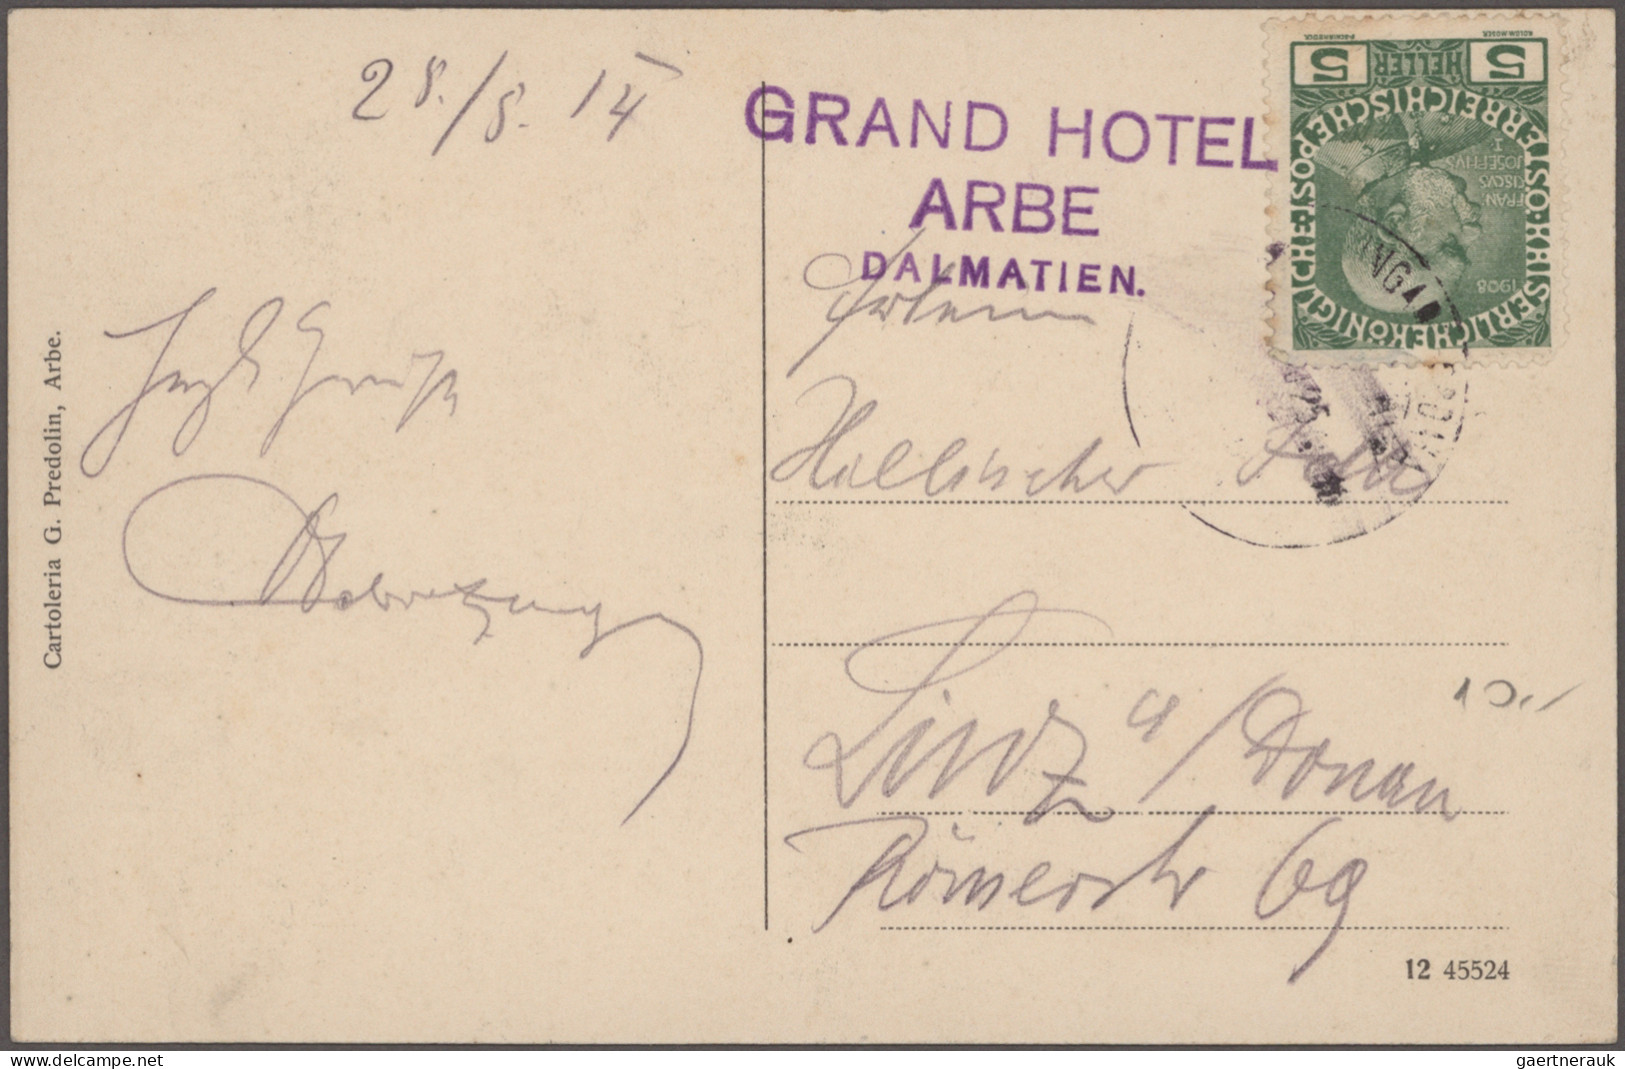 28./8. 14
GRAND HOTEL
ARBE
DALMATIEN.
5 HELLER 5
KAISERLICHE KÖNIGLICHE ÖSTERREICHISCHE POST
FRAN
CISCVS
JOSEPHVS
I
1908
Hallischer
Linz a/Donau
Römerstr 69
10.-
Cartoleria G. Predolin, Arbe.
12 45524
gaertnerauk
www.delcampe.net